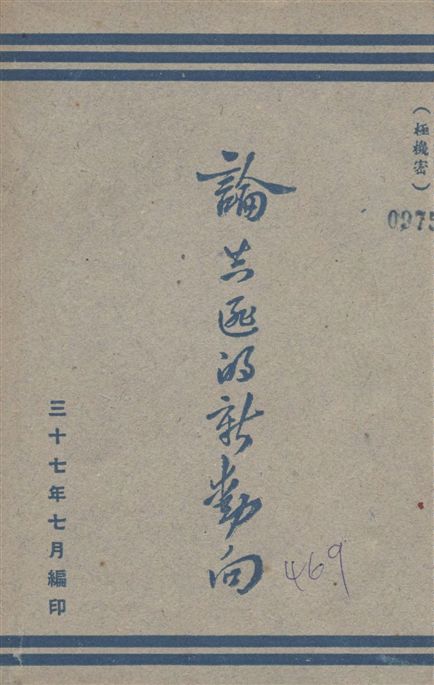 （極機密）
0975
論共匪的新動向
三十七年七月編印
469